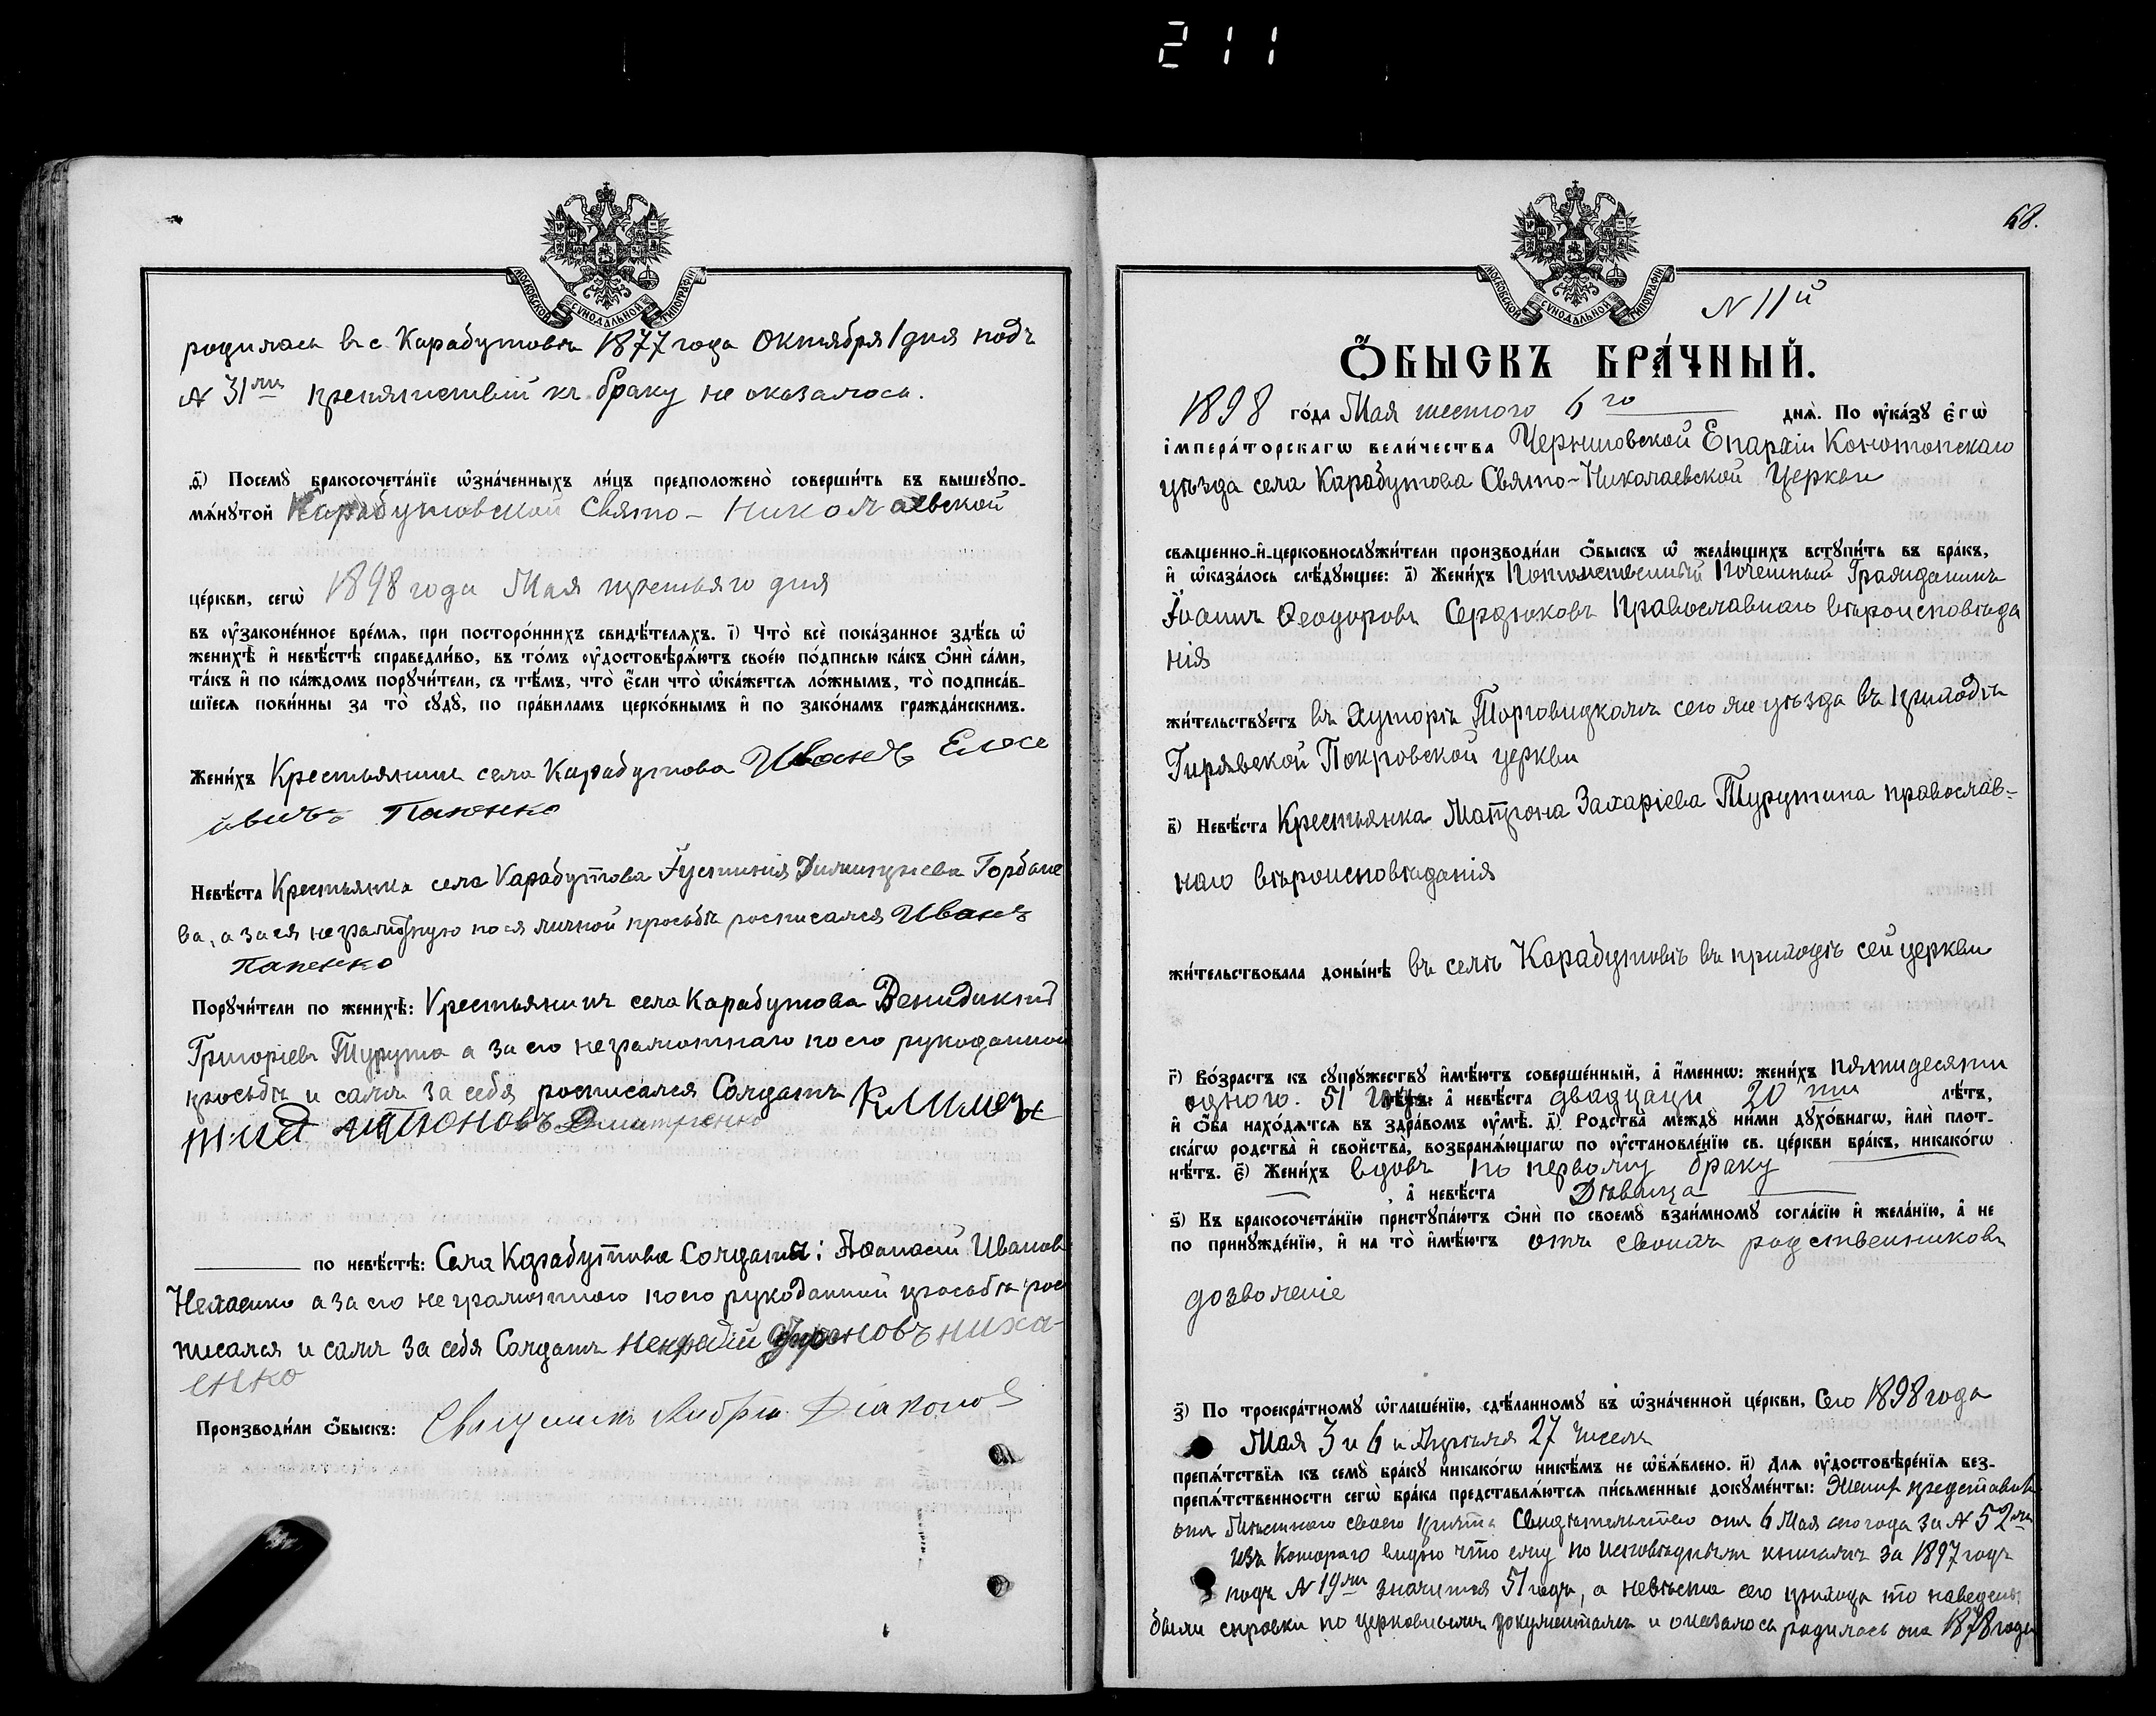 211
МОСКОВСКОЙ СУНОДАЛЬНОЙ ТИПОГРАФІИ
родилась въ с. Карабутовѣ 1877 года Октября 1 дня подъ
№ 31мъ препятствій къ браку не оказалось.
д҃) Посемꙋ̀ бракосочета́нїе ѡ҆зна́ченныхъ ли́цъ предположено̀ соверши́ть въ вышеꙋпо-
мѧ́нꙋтой Карабутовской Свято-Николаевской
це́ркви, сегѡ̀ 1898 года Мая третьяго дня
въ ᲂу҆законе́нное вре́мѧ, при посторо́ннихъ свидѣ́телѧхъ. і҃) Что̀ всѐ пока́занное здѣ́сь ѡ҆
женихѣ̀ и҆ невѣ́стѣ справедли́во, въ то́мъ ᲂу҆достовѣрѧ́ютъ свое́ю по́дписью ка́къ ѻ҆нѝ са́ми,
та́къ и҆ по ка́ждомъ порꙋчи́тели, съ тѣ́мъ, что̀ є҆́сли что̀ ѡ҆ка́жетсѧ ло́жнымъ, то̀ подписа́в-
шїесѧ пови́нны за то̀ сꙋдꙋ̀, по пра́виламъ церко́внымъ и҆ по зако́намъ гражда́нскимъ.
Жени́хъ Крестьянинъ села Карабутова Иванъ Елисе
йвичъ Папенко
Невѣ́ста Крестьянка села Карабутова Іустинія Димитріева Горбане
ва, а за ея неграмотную по ея личной просьбѣ росписался Иванъ
Папенко
Порꙋчи́тели по женихѣ̀: Крестьянинъ села Карабутова Венидиктъ
Григоріевъ Турута а за его неграмотнаго по его рукоданной
просьбѣ и самъ за себя росписался Солдатъ Климен
тий Дмитренко
по невѣ́стѣ: Села Карабутова Солдаты: Аѳанасій Ивановъ
а за его неграмотного по его рукоданной просьбѣ рос
писался и самъ за себя Солдатъ ниха-
енко
Производи́ли ѻ҆́быскъ: Священникъ Діаконов
68.
МОСКОВСКОЙ СУНОДАЛЬНОЙ ТИПОГРАФІИ
№ 11й
Ѻ҆́БЫСКЪ БРА́ЧНЫЙ.
1898 го́да Мая шестого 6го днѧ̀. По ᲂу҆ка́зꙋ є҆гѡ̀
і҆мпера́торскагѡ вели́чества Черниговской Епархіи Конотопскаго
уѣзда села Карабутова Свято-Николаевской Церкви
свѧщенно-и҆-церковнослꙋжи́тели производи́ли ѻ҆́быскъ ѡ҆ жела́ющихъ вступи́ть въ бра́къ,
и҆ ѡ҆каза́лось слѣ́дꙋющее: а҃) Жени́хъ Потомственный Почетный Гражданинъ
Іоаннъ Ѳеодоровъ Сердюковъ Православнаго вѣроисповѣда
нія
жи́тельствꙋетъ въ Хуторѣ Торговицкомъ сего же уѣзда въ приходѣ
Гирявской Покровской церкви
в҃) Невѣ́ста Крестьянка Матрона Захаріева Турутина православ-
наго вѣроисповѣданія
жи́тельствовала доны́нѣ въ селѣ Карабутовѣ въ приходѣ сей церкви
г҃) Во́зрастъ къ сꙋпрꙋ́жествꙋ и҆мѣ́ютъ соверше́нный, а҆ и҆́меннѡ: жени́хъ пятидесяти
одного. 51 годъ лѣ́тъ: а҆ невѣ́ста двадцати 20ти лѣ́тъ,
и҆ ѻ҆́ба нахо́дѧтсѧ въ здра́вомъ ᲂу҆мѣ̀. д҃) Родства̀ междꙋ̀ ни́ми дꙋхо́внагѡ, и҆лѝ плот-
ска́гѡ родства̀ и҆ свойства̀, возбранѧ́ющагѡ по ᲂу҆становле́нїю св. це́ркви бра́къ, никако́гѡ
нѣ́тъ. є҃) Жени́хъ вдовъ по первому браку
а҆ невѣ́ста Дѣвица
ѕ҃) Къ бракосочета́нїю пристꙋпа́ютъ ѻ҆нѝ по своемꙋ̀ взаи́мномꙋ согла́сїю и҆ жела́нїю, а҆ не
по принꙋжде́нїю, и҆ на то̀ и҆мѣ́ютъ отъ своихъ родственниковъ
дозволеніе
з҃) По троекра́тномꙋ ѡ҆глаше́нїю, сдѣ́ланномꙋ въ ѡ҆зна́ченной це́ркви, Сего 1898 года
Мая 3 и 6 и Апрѣля 27 чиселъ
препѧ́тствїѧ къ семꙋ̀ бра́кꙋ никако́гѡ никѣ́мъ не ѡ҆б̾ѧ́влено. и҃) Длѧ ᲂу҆достовѣре́нїѧ без-
препѧ́тственности сегѡ̀ бра́ка представлѧ́ютсѧ пи́сьменные докꙋме́нты: Жених представилъ
отъ Мѣстнаго своего причта Свидѣтельство отъ 6 Мая сего года за № 52мъ
изъ Котораго видно что ему по исповѣднымъ книгамъ за 1897 годъ
подъ № 19мъ значится 51 годъ, а невѣста сего прихода то наведены
были справки по церковнымъ документамъ и оказалось родилась она 1878 года